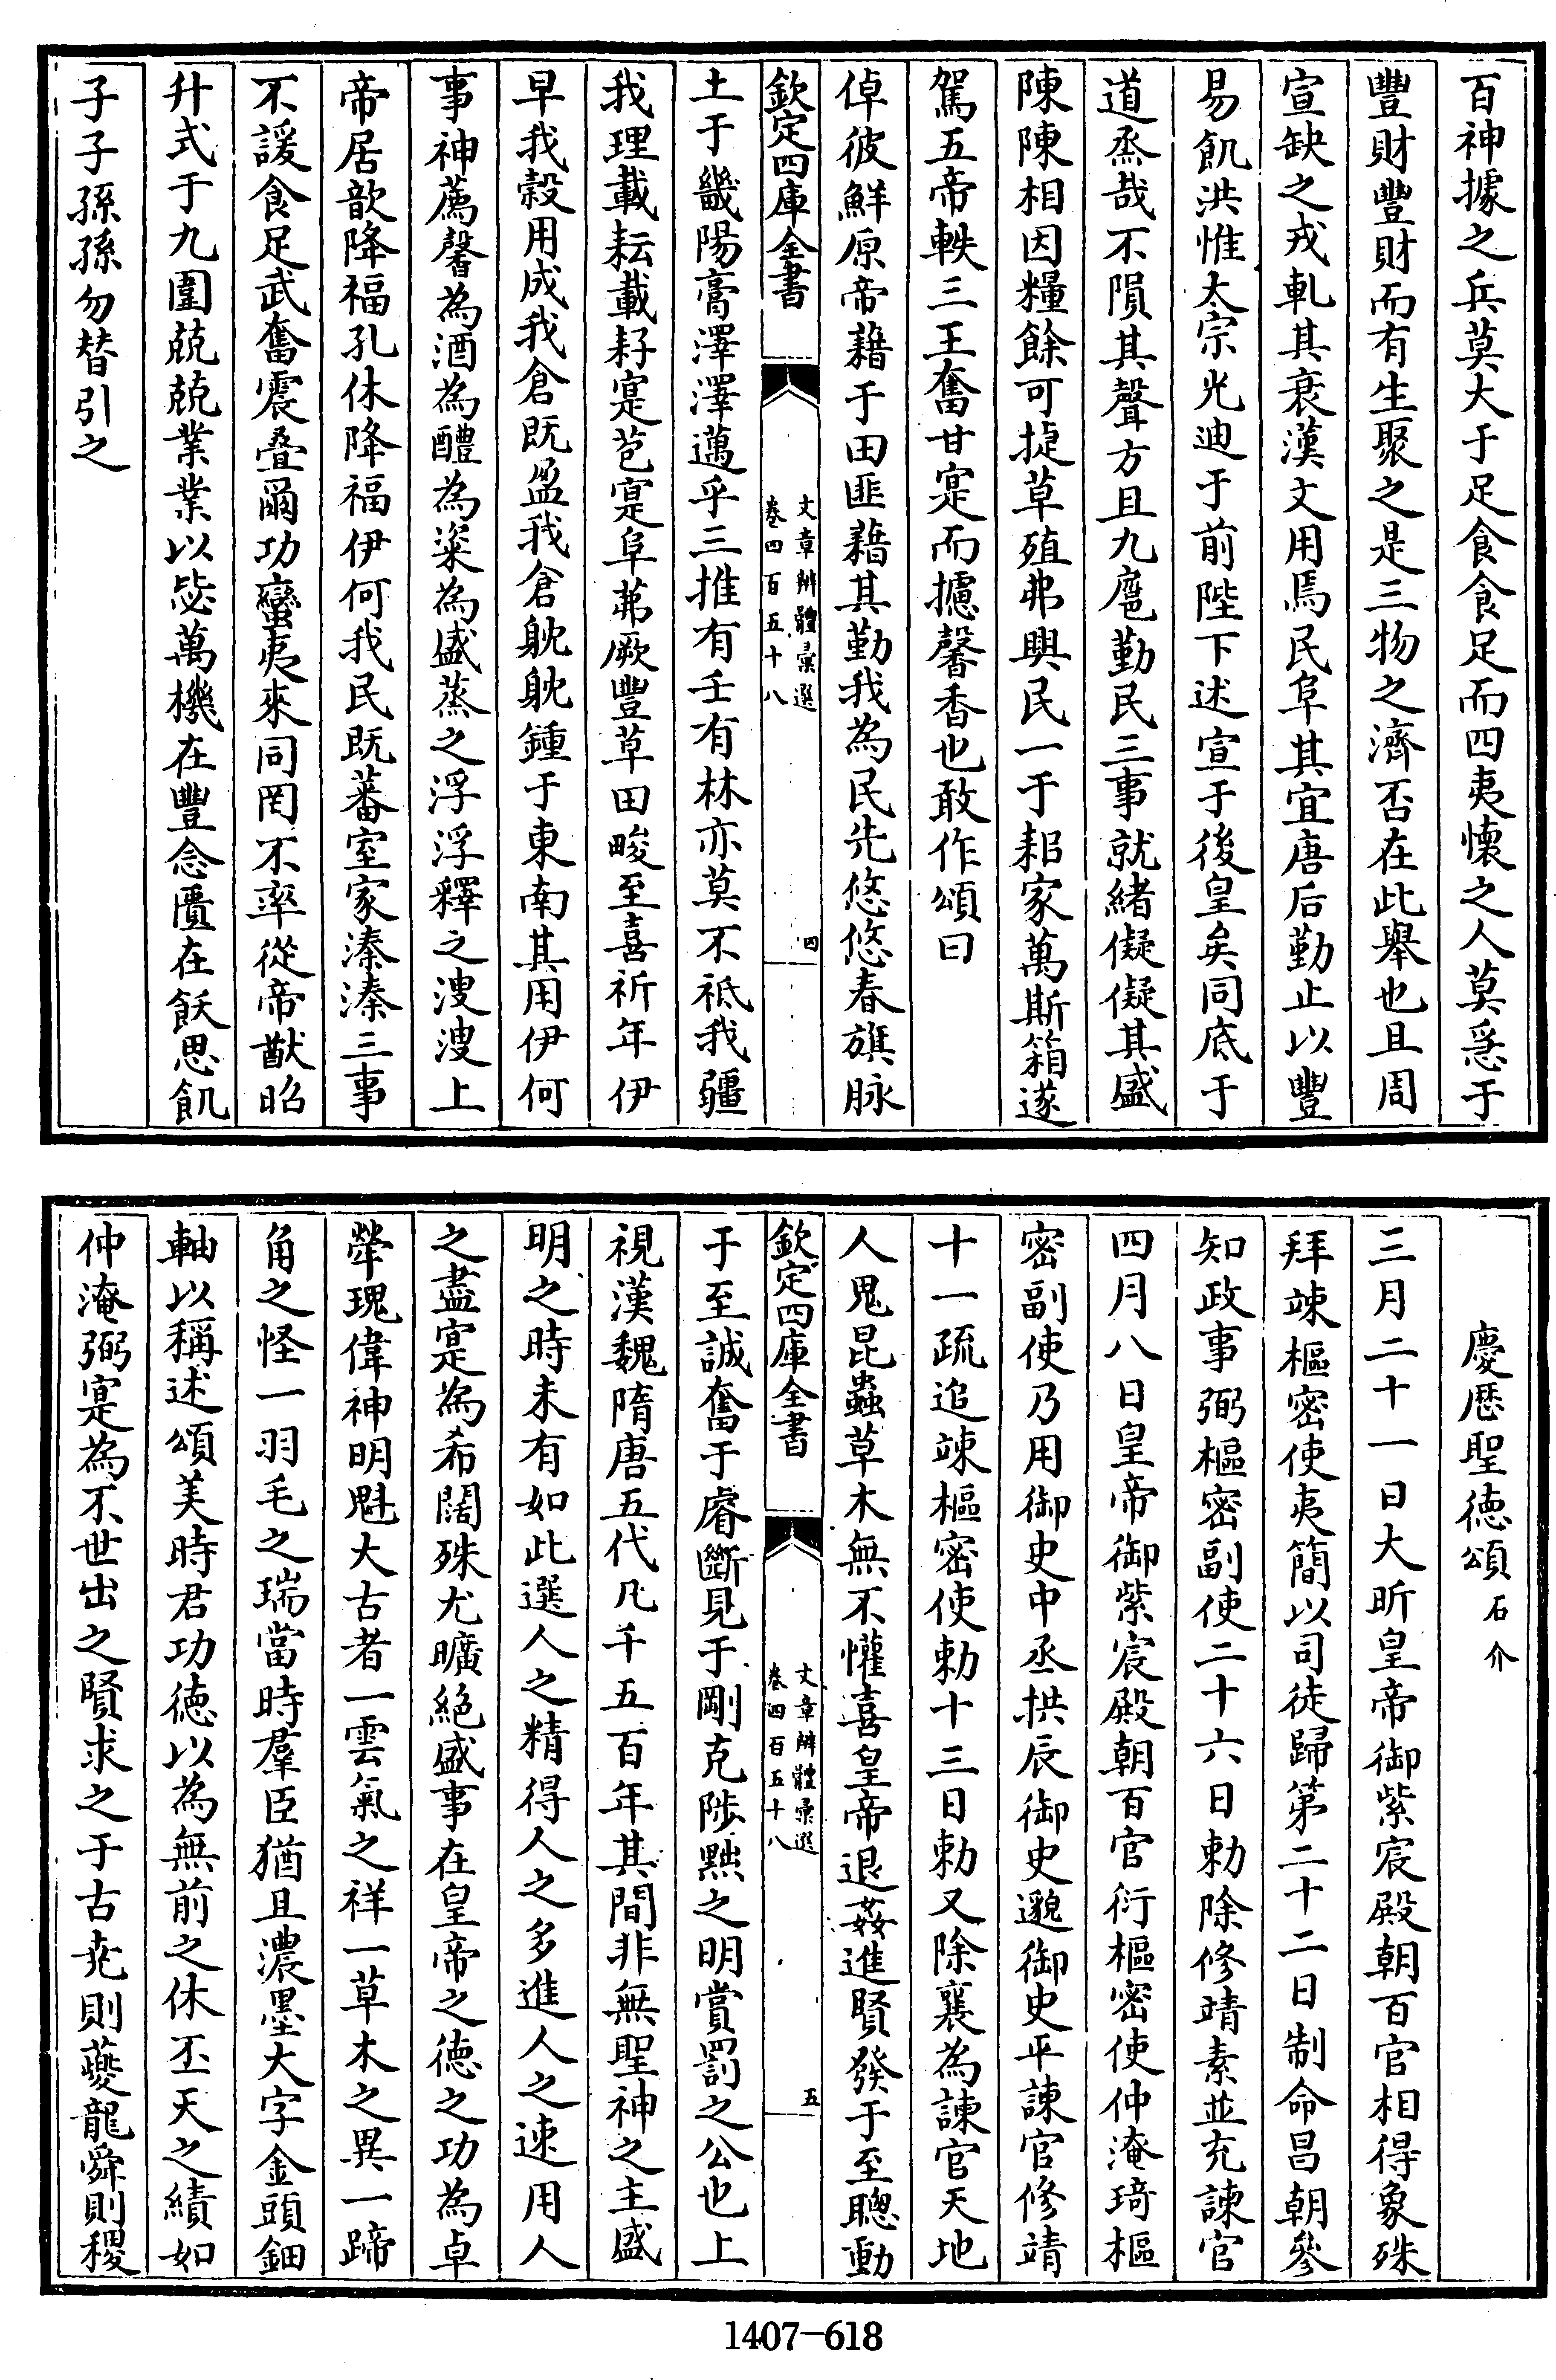 百神據之兵莫大于足食食足而四夷懷之人莫急于
豐財豐財而有生聚之是三物之濟否在此舉也且周
宣缺之戎軋其衰漢文用焉民阜其宜唐后勤止以豐
易飢洪惟太宗光迪于前陛下述宣于後皇矣同底于
道烝哉不隕其聲方且九扈勤民三事就緒儗儗其盛
陳陳相因糧餘可捷草殖弗興民一于耜家萬斯箱遂
駕五帝軼三王奮甘寔而攄馨香也敢作頌曰
倬彼鮮原帝藉于田匪藉其勤我為民先悠悠春旗脉
欽定四庫全書
文章辨體彙選
卷四百五十八
四
土于畿陽膏澤澤邁乎三推有壬有林亦莫不祗我疆
我理載耘載耔寔苞寔阜茀厥豐草田畯至喜祈年伊
早我穀用成我倉既盈我倉躭躭鍾于東南其用伊何
事神薦馨為酒為醴為粢為盛蒸之浮浮釋之溲溲上
帝居歆降福孔休降福伊何我民既蕃室家溱溱三事
不諼食足武奮震疊爾功蠻夷來同罔不率從帝猷昭
升式于九圍兢兢業業以毖萬機在豐念匱在飫思飢
子子孫孫勿替引之
慶歴聖徳頌石介
三月二十一日大昕皇帝御紫宸殿朝百官相得象殊
拜竦樞密使夷簡以司徒歸第二十二日制命昌朝參
知政事弼樞密副使二十六日勅除修靖素並充諫官
四月八日皇帝御紫宸殿朝百官衍樞密使仲淹琦樞
密副使乃用御史中丞拱辰御史邈御史平諫官修靖
十一疏追竦樞密使勅十三日勅又除襄為諫官天地
人鬼昆蟲草木無不懽喜皇帝退姦進賢發于至聰動
欽定四庫全書
文章辨體彙選
卷四百五十八
五
于至誠奮于睿斷見于剛克陟黜之明賞罰之公也上
視漢魏隋唐五代凡千五百年其間非無聖神之主盛
明之時未有如此選人之精得人之多進人之速用人
之盡寔為希闊殊尤曠絕盛事在皇帝之徳之功為卓
犖瑰偉神明魁大古者一雲氣之祥一草木之異一蹄
角之怪一羽毛之瑞當時羣臣猶且濃墨大字金頭鈿
軸以稱述頌美時君功徳以為無前之休丕天之績如
仲淹弼寔為不世出之賢求之于古尭則夔龍舜則稷
1407—618